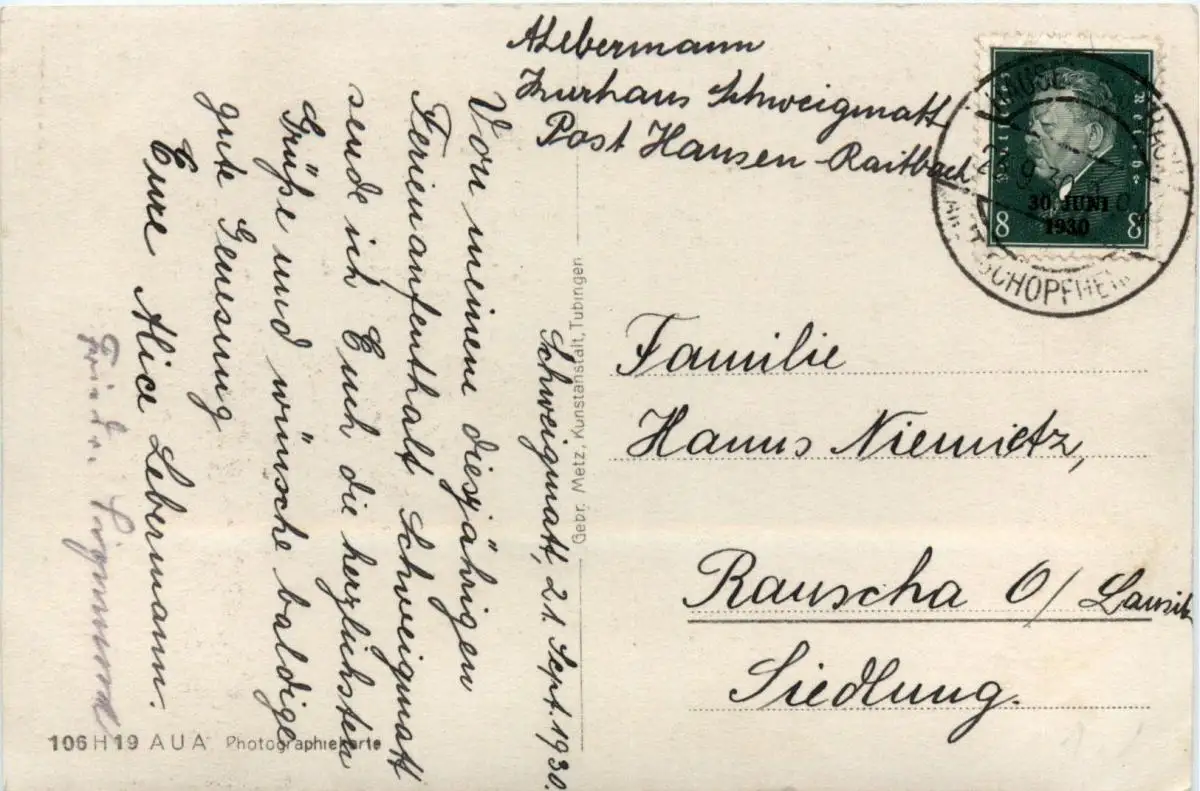 ALebermann
Kurhaus Schweigmatt
Post Hausen-Raitbach
Schweigmatt, 21. Sept. 1930.
Von meinem diesjährigen
Ferienaufenthalt Schweigmatt
sende ich Euch die herzlichsten
Grüße und wünsche baldige
gute Genesung
Eure Alice Lebermann.
Deutsches Reich
30. JUNI
1930
8 8
SCHOPFHEIM
Familie
Hanns Niemietz,
Rauscha O/ Lausitz
Siedlung.
Gebr. Metz, Kunstanstalt, Tübingen
106 H 19 A U A Photographiekarte